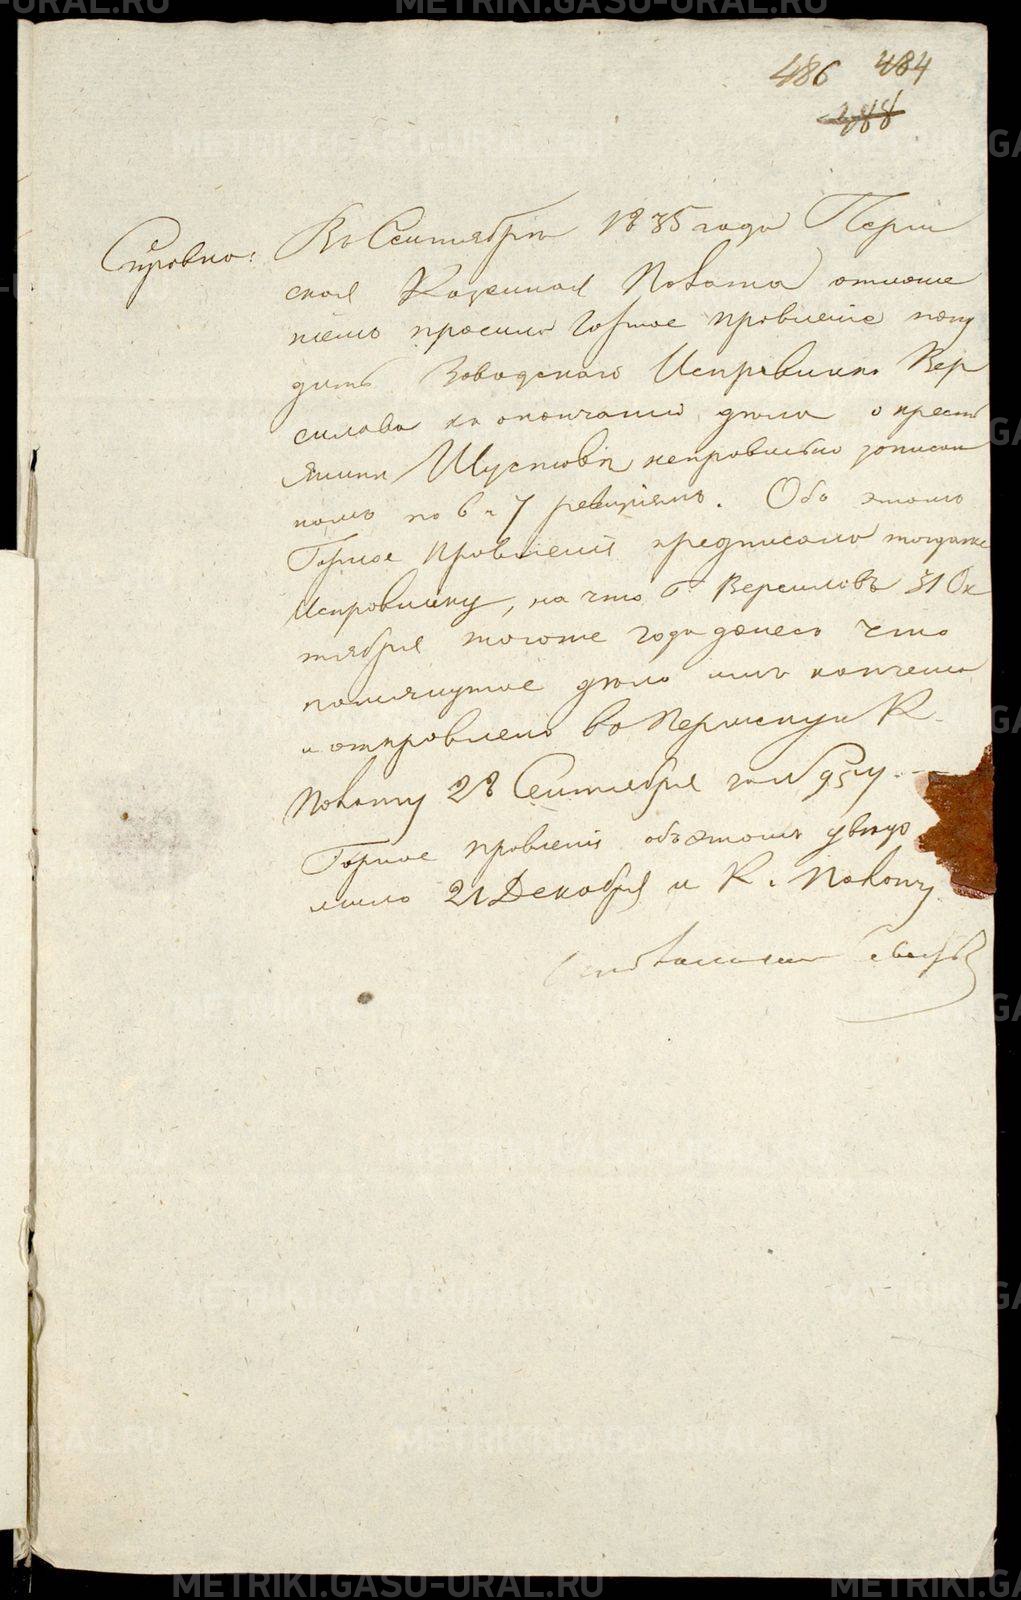 486 484
288
Справка:
Въ Сентябрѣ 1835 года Перм
ская Казенная Палата отноше
ніемъ просила Горное правленіе пону
дить Заводскаго Исправника Вер
силова къ окончанію дѣла о кресть
янинѣ Шустовѣ неправильно записан
номъ по 6 и 7 ревизіямъ. Объ этомъ
Горное Правленіе предписало тогдаже
Исправнику, на что Г. Версиловъ 31 Ок
тября тогоже года донесъ что
помянутое дѣло имъ кончено
и отправлено въ Пермскую К.
Палату 28 Сентября за №
Горное правленіе объ этомъ увѣдо
мило 21 Декабря и К. Палату.